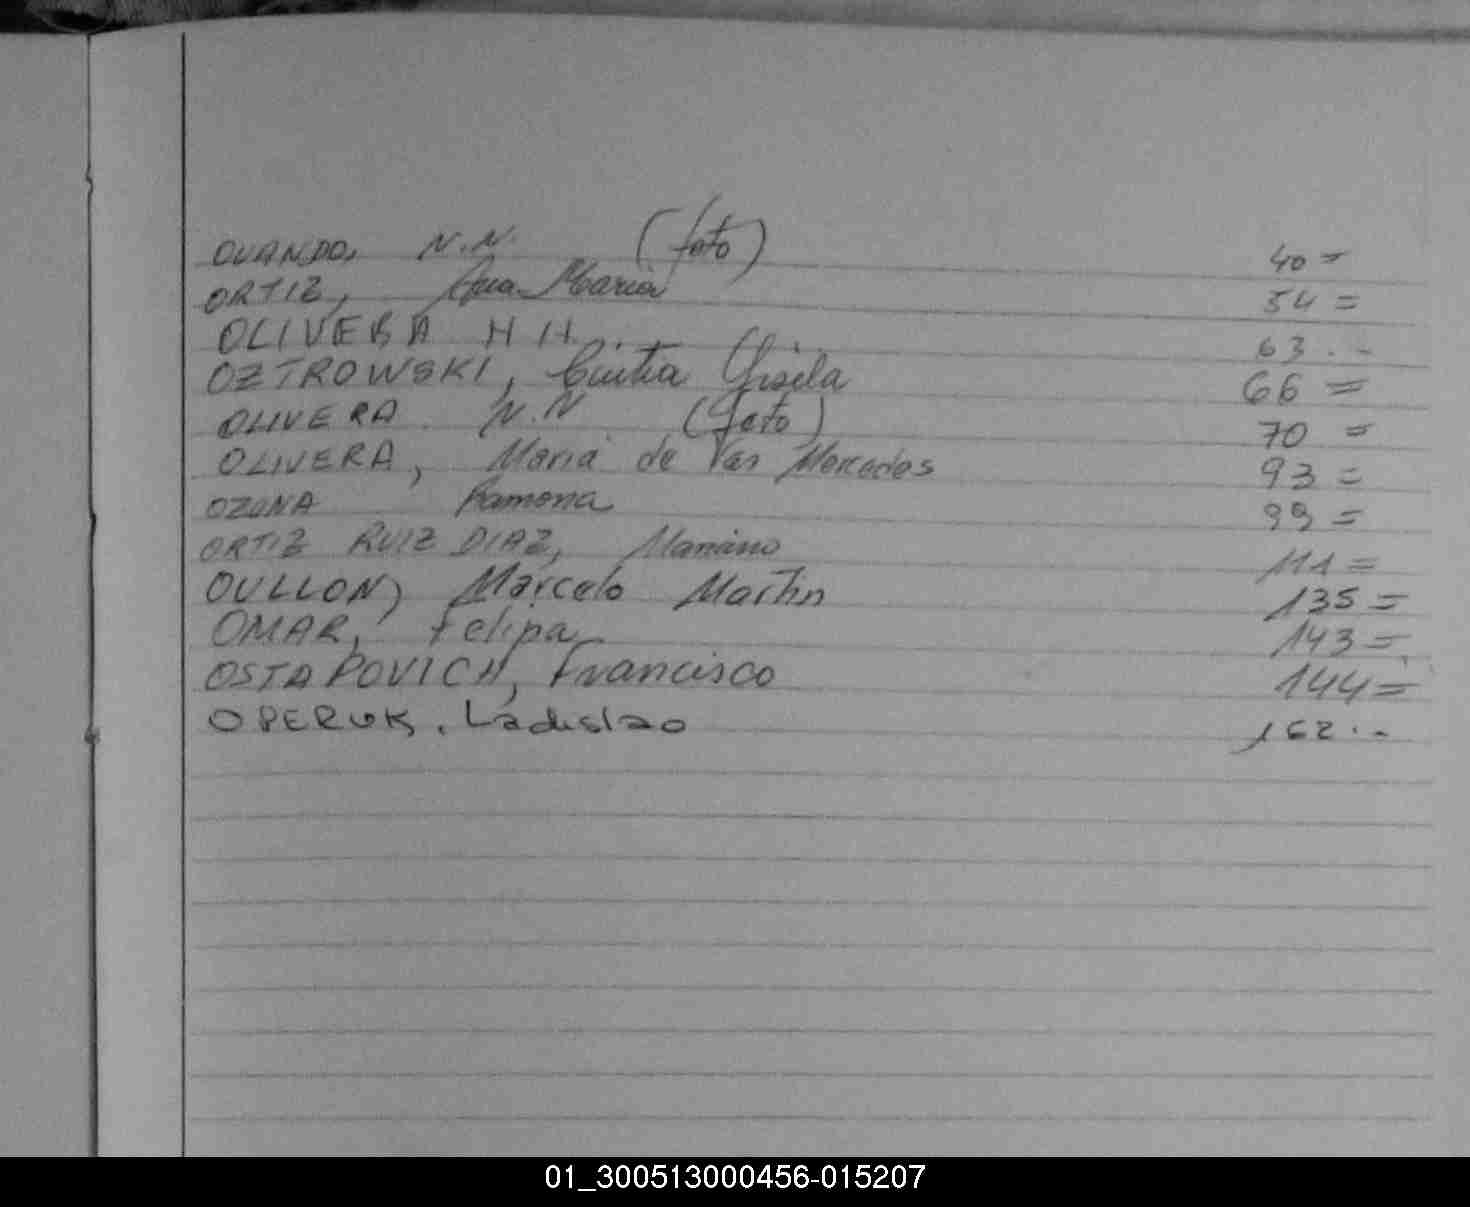 OVANDO, N.N. (foto) 40=
ORTIZ, Ana Maria 54=
OLIVERA N N. 63.-
OZTROWSKI, Cintia Gisela 66=
OLIVERA N.N (foto) 70=
OLIVERA, Maria de las Mercedes 93=
OZUNA Ramona 99=
ORTIZ RUIZ DIAZ, Mariano 111=
OULLON, Marcelo Martin 135=
OMAR, Felipa 143=
OSTAPOVICH, Francisco 144=
OPERUK. Ladislao 162.-
01_300513000456-015207